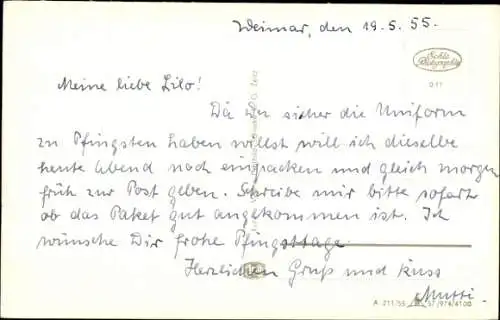 Weimar, den 19.5.55.
Echte
Photographie
Meine liebe Lilo!
Da Du sicher die Uniform
zu Pfingsten haben willst will ich dieselbe
heute Abend noch einpacken und gleich morgen
früh zur Post geben. Schreibe mir bitte sofort
ob das Paket gut angekommen ist. Ich
wünsche Dir frohe Pfingsttage
Herzlichen Gruß und Kuss
Mutti.
A 211/55